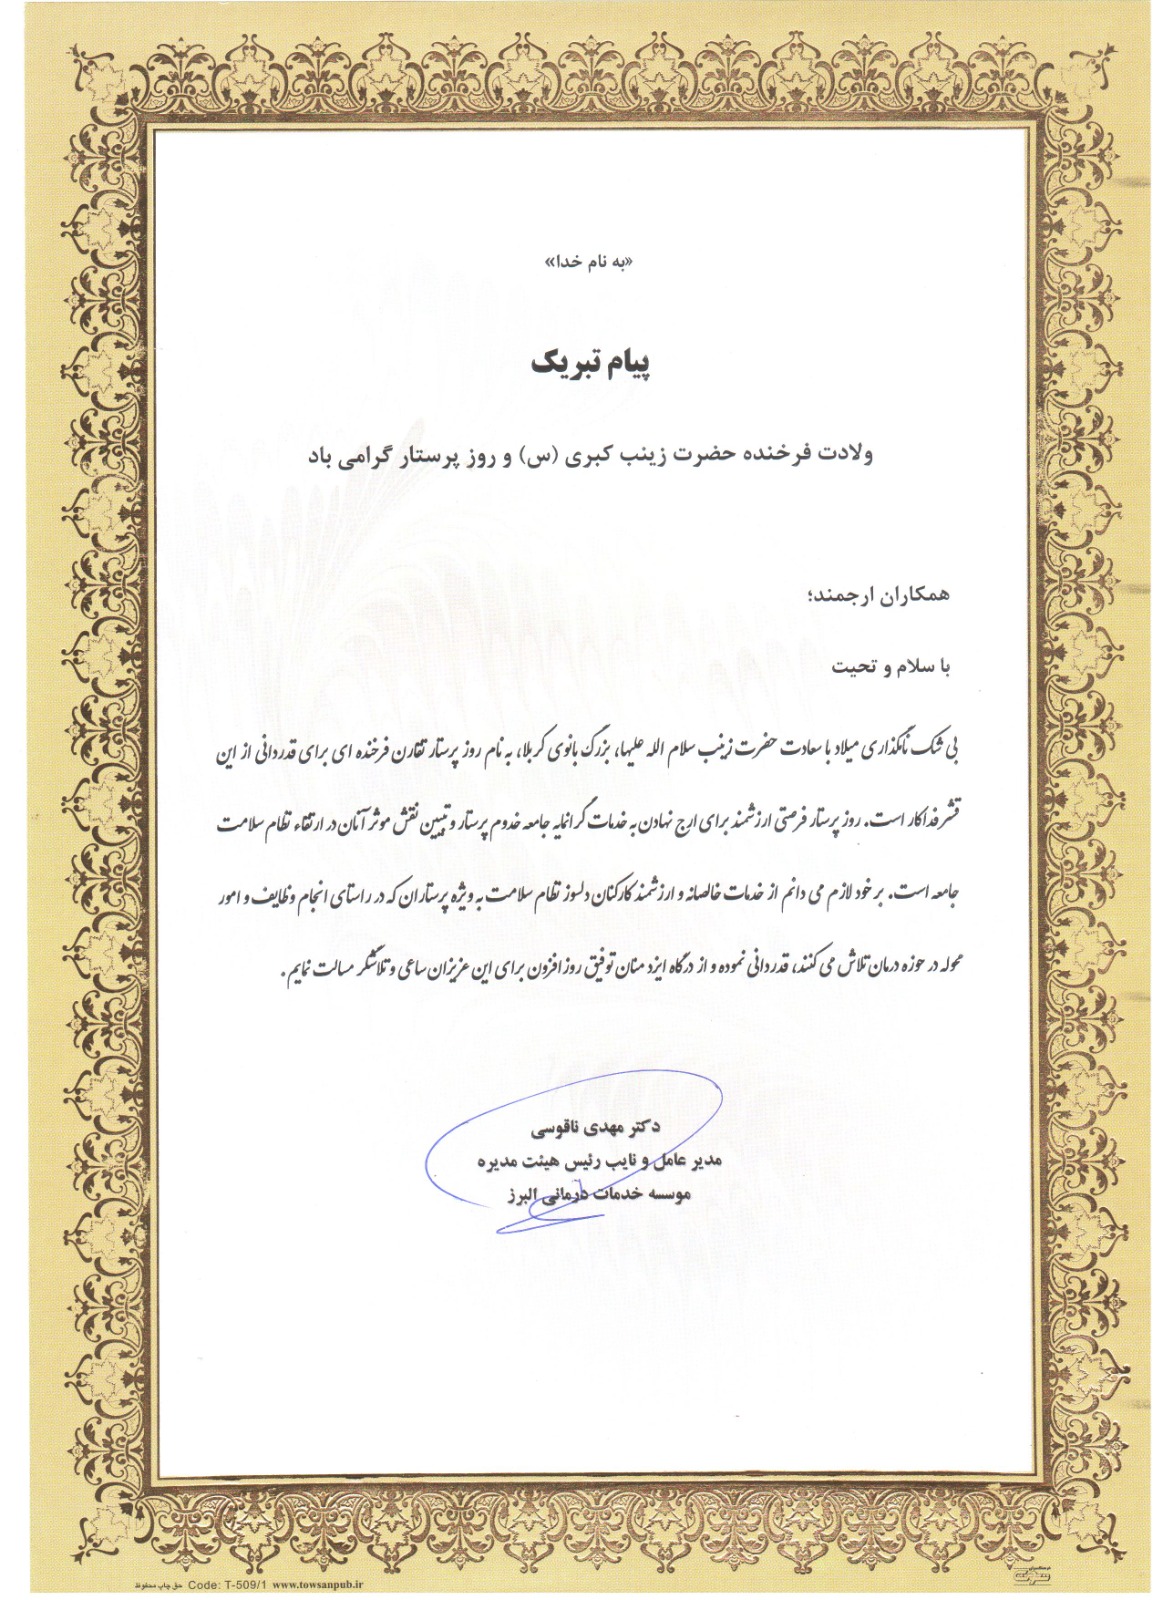 «به نام خدا»
پیام تبریک
ولادت فرخنده حضرت زینب کبری (س) و روز پرستار گرامی باد
همکاران ارجمند؛
با سلام و تحیت
بی شک نامگذاری میلاد با سعادت حضرت زینب سلام الله علیها، بزرگ بانوی کربلا، به نام روز پرستار تقارن فرخنده ای برای قدردانی از این
قشر فداکار است. روز پرستار فرصتی ارزشمند برای ارج نهادن به خدمات گرانمایه جامعه خدوم پرستار و تبیین نقش موثر آنان در ارتقاء نظام سلامت
جامعه است. بر خود لازم می دانم از خدمات خالصانه و ارزشمند کارکنان دلسوز نظام سلامت به ویژه پرستاران که در راستای انجام وظایف و امور
محوله در حوزه درمان تلاش می کنند، قدردانی نموده و از درگاه ایزد منان توفیق روز افزون برای این عزیزان ساعی و تلاشگر مسالت نمایم.
دکتر مهدی ناقوسی
مدیر عامل و نایب رئیس هیئت مدیره
موسسه خدمات درمانی البرز
حق چاپ محفوظ Code: T-509/1 www.towsanpub.ir